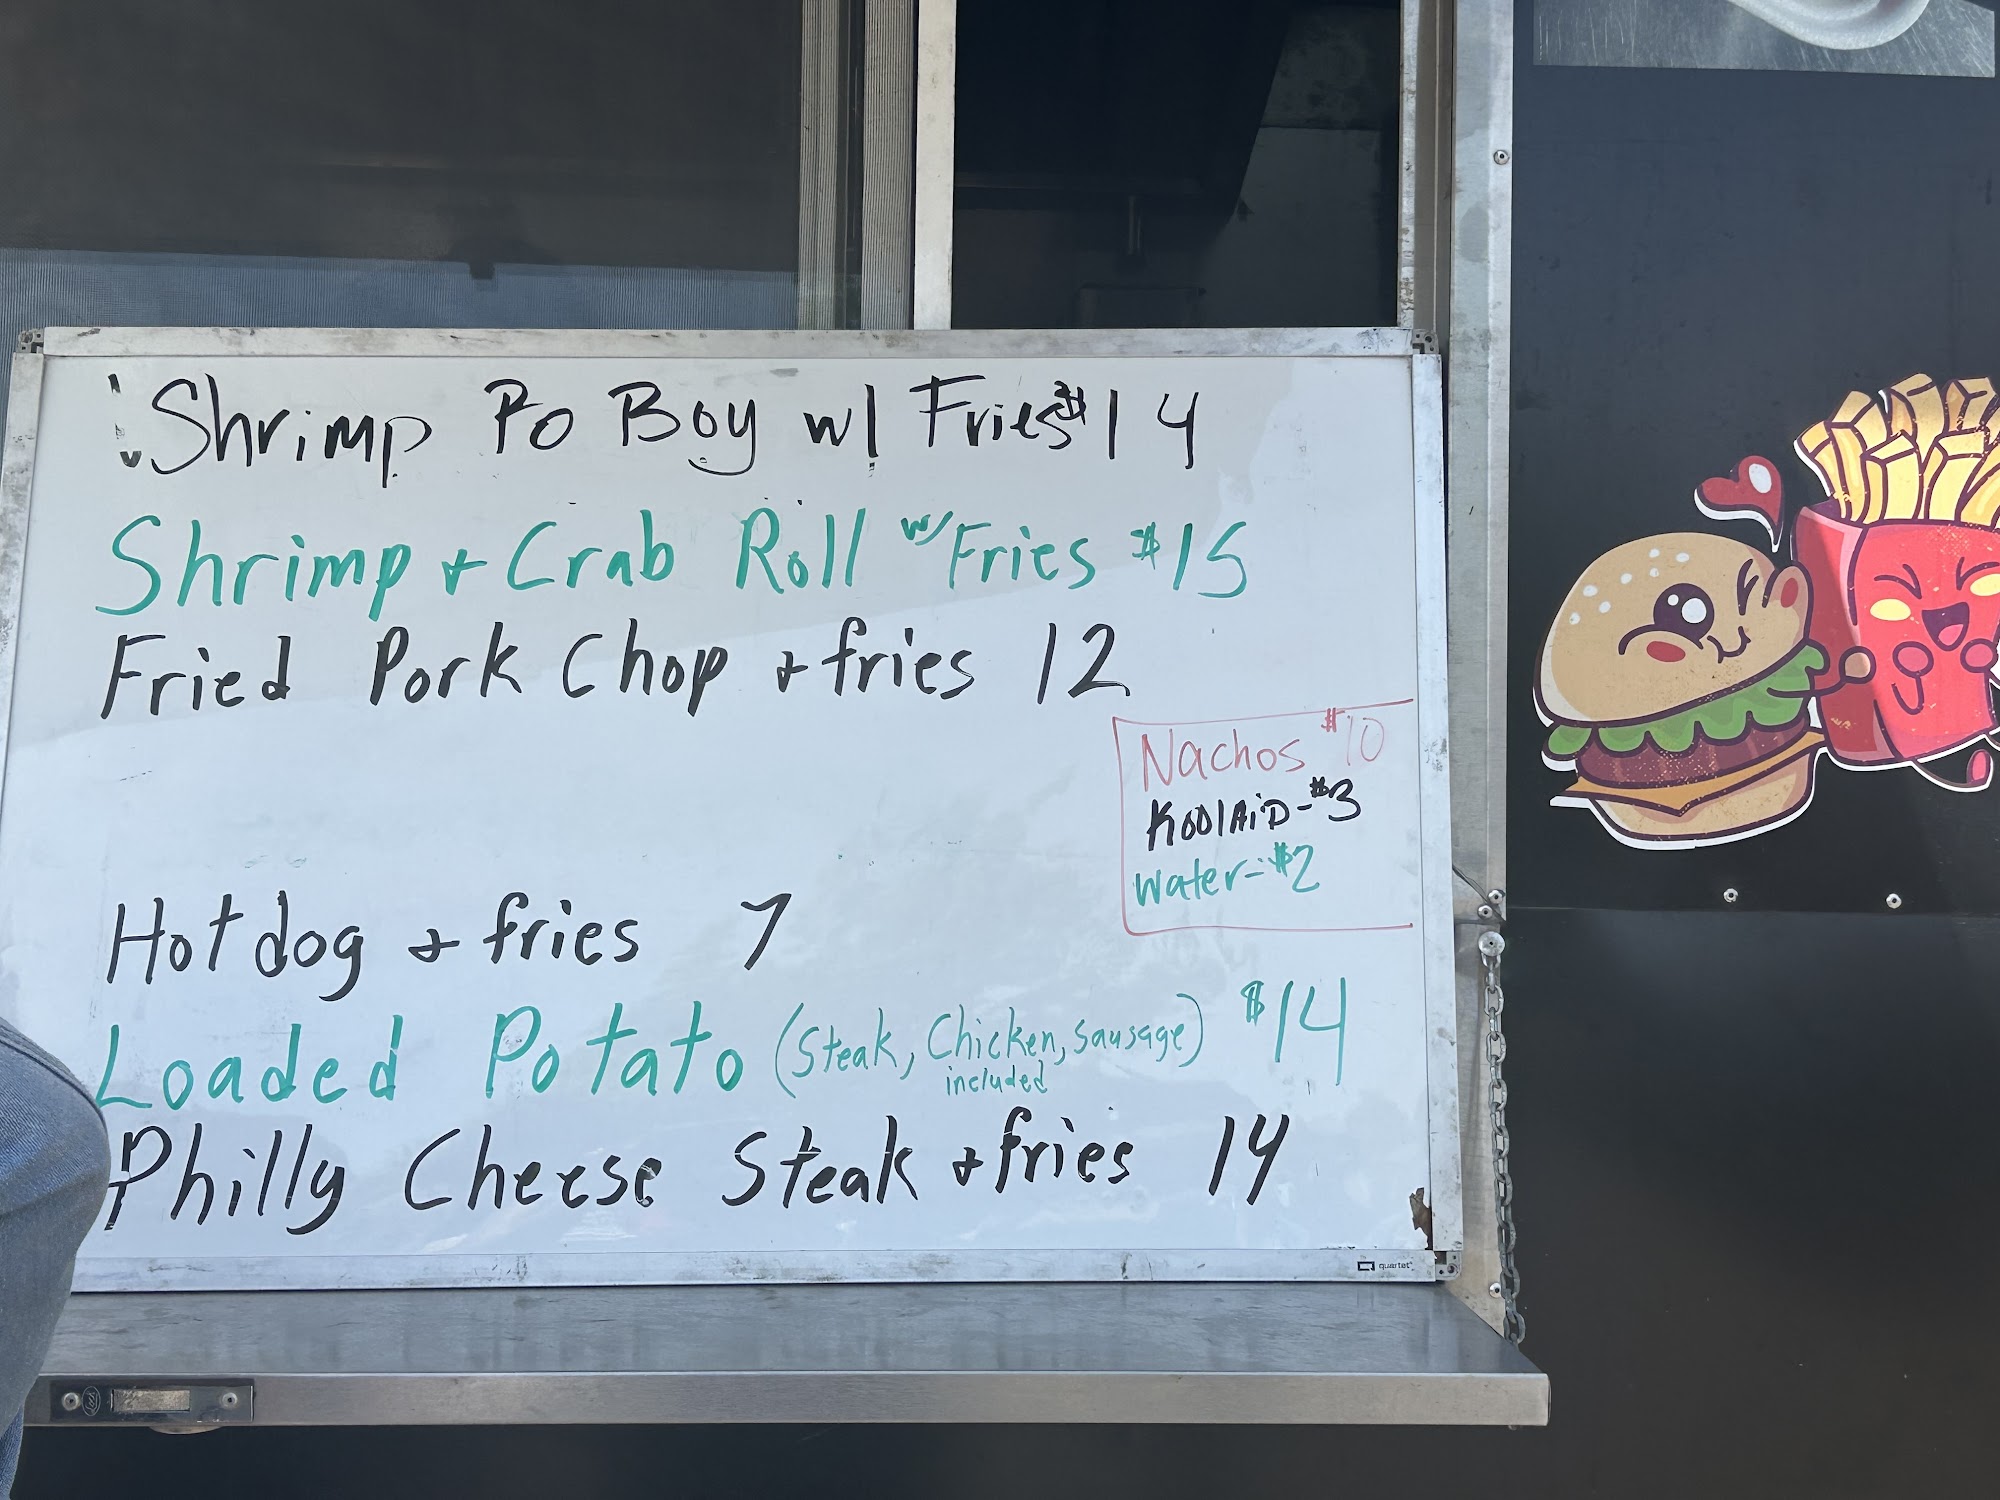 Shrimp Po Boy w/ Fries $14
Shrimp + Crab Roll w/ Fries $15
Fried Pork Chop + fries 12
Nachos $10
KoolAiD-$3
Water-$2
Hot dog + fries 7
Loaded Potato (Steak, Chicken, Sausage) $14
included
Philly Cheese Steak + fries 14
quartet